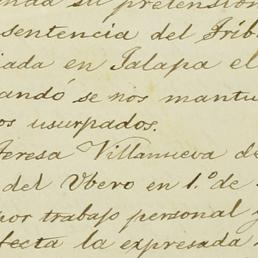 su pretensión
sentencia del Trib
iada en Jalapa el
andó se nos mantu
os usurpados.
Teresa Villanueva de
del Ubero en 1.º de
por trabajo personal y
fecta la expresada